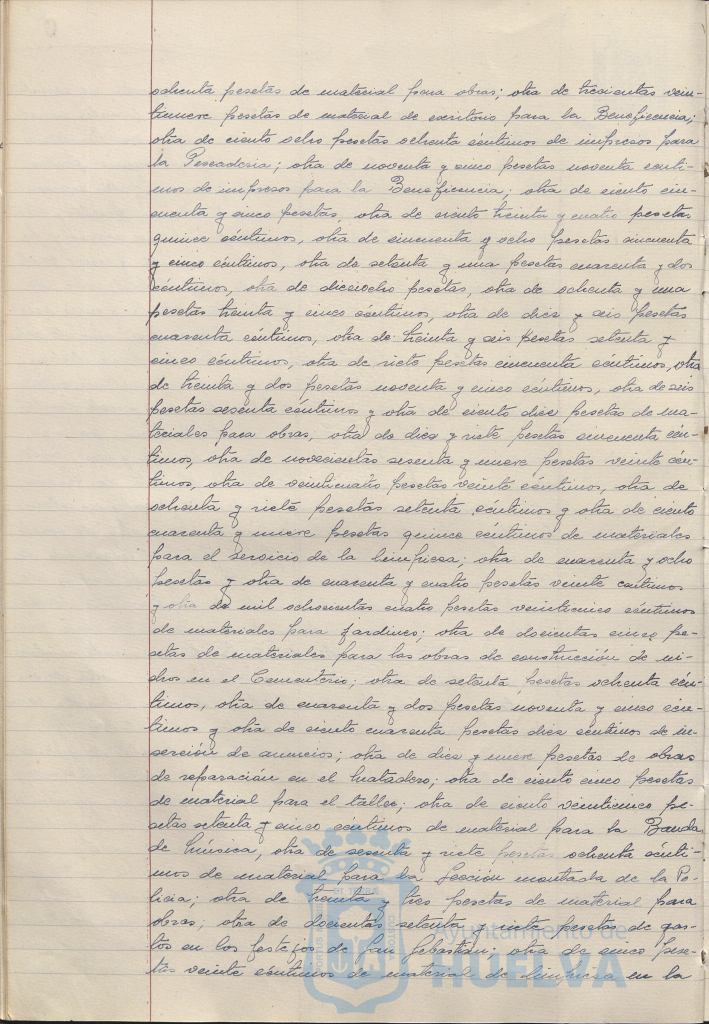 ochenta pesetas de material para obras; otra de trescientas vein-
tinueve pesetas de material de escritorio para la Beneficencia;
otra de ciento ocho pesetas ochenta céntimos de impresos para
la Pescadería; otra de noventa y cinco pesetas noventa cénti-
mos de impresos para la Beneficencia; otra de ciento cin-
cuenta y cinco pesetas, otra de ciento treinta y cuatro pesetas
quince céntimos, otra de cincuenta y ocho pesetas cincuenta
y cinco céntimos, otra de setenta y una pesetas cuarenta y dos
céntimos, otra de dieciocho pesetas, otra de ochenta y una
pesetas treinta y cinco céntimos, otra de diez y seis pesetas
cuarenta céntimos, otra de treinta y seis pesetas setenta y
cinco céntimos, otra de siete pesetas cincuenta céntimos, otra
de treinta y dos pesetas noventa y cinco céntimos, otra de seis
pesetas sesenta céntimos y otra de ciento diez pesetas de ma-
teriales para obras, otra de diez y siete pesetas cincuenta cén-
timos, otra de novecientas sesenta y nueve pesetas veinte cén-
timos, otra de veinticuatro pesetas veinte céntimos, otra de
ochenta y siete pesetas setenta céntimos y otra de ciento
cuarenta y nueve pesetas quince céntimos de materiales
para el servicio de la limpieza; otra de cuarenta y ocho
pesetas y otra de cuarenta y cuatro pesetas veinte céntimos
y otra de mil ochocientas cuatro pesetas veinticinco céntimos
de materiales para jardines; otra de doscientas cinco pe-
setas de materiales para las obras de construcción de ni-
chos en el Cementerio; otra de setenta pesetas ochenta cén-
timos, otra de cuarenta y dos pesetas noventa y cinco cén-
timos y otra de ciento cuarenta pesetas diez céntimos de in-
serción de anuncios; otra de diez y nueve pesetas de obras
de reparación en el Matadero; otra de ciento cinco pesetas
de material para el taller; otra de ciento veinticinco pe-
setas setenta y cinco céntimos de material para la Banda
de Música, otra de sesenta y siete pesetas ochenta cénti-
mos de material para la Sección montada de la Po-
licia; otra de treinta y tres pesetas de material para
obras; otra de doscientas setenta y siete pesetas de gas-
tos en los festejos de San Sebastián; otra de cinco pese-
tas veinte céntimos de material de limpieza en la
Ayuntamiento de
HUELVA